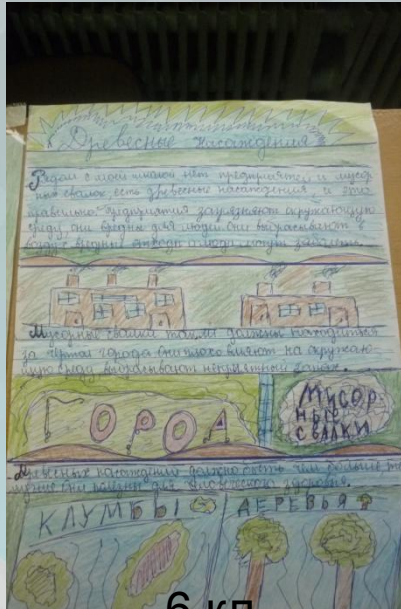 Древесные насаждения
Рядом с моей школой нет предприятей и мусор
ных свалок, есть древесные насаждения и это
правильно. Предприятия загрязняют окружающую
среду, они вредны для людей они выбрасывают в
воздух вредные отходы и люди могут заболеть.
Мусорные свалки также должны находиться
за чертой города они плохо влияют на окружаю-
щую среду выбрасывают неприятный запах.
ГОРОД
МУСОР-
НЫЕ
СВАЛКИ
Древесных насаждений должно быть чем больше тем
они полезны для человеческого здоровья.
КЛУМБЫ ДЕРЕВЬЯ
6 кл